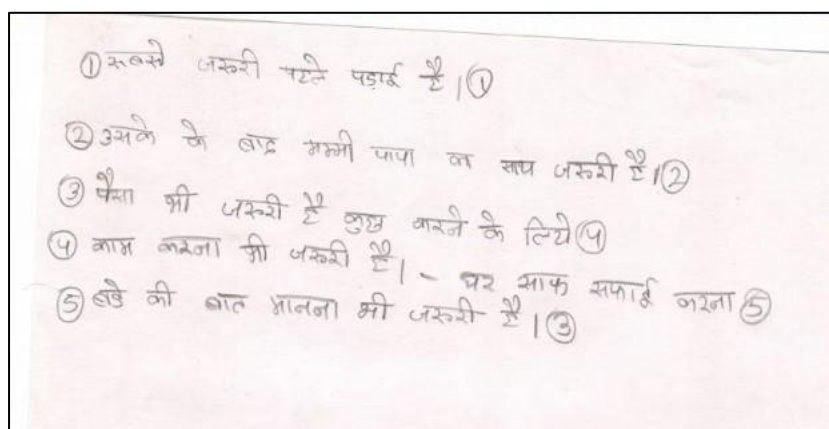 ① सबसे जरूरी पहले पड़ाई है। ①
② उसके के बाद मम्मी पापा का साथ जरूरी है। ②
③ पैसा भी जरूरी है कुछ करने के लिये ④
④ काम करना भी जरूरी है। - घर साफ सफाई करना ⑤
⑤ बडे की बात मानना भी जरूरी है। ③